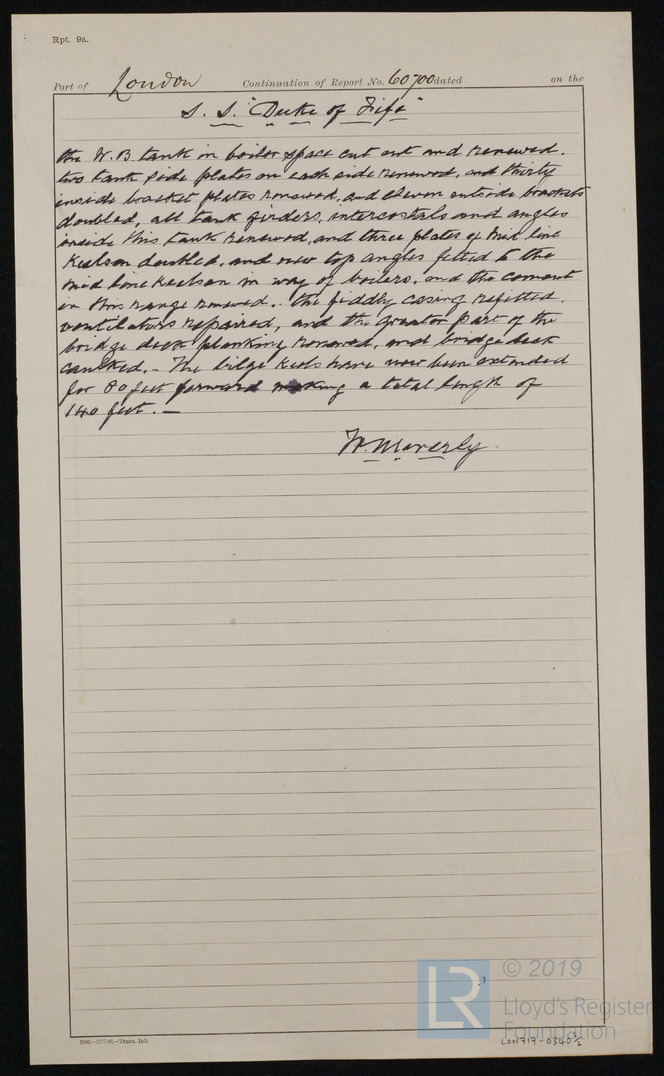 Rpt. 9a.
Port of London Continuation of Report No. 60700 dated on the
S. S. "Duke of Fife"
the W. B. tank in boiler space cut out and renewed.
two tank side plates on each side renewed, and thirty
inside bracket plates renewed, and eleven outside brackets
doubled, all tank girders, intercostals and angles
inside this tank renewed, and three plates of mid line
Keelson doubled, and new top angles fitted to the
mid line Keelson in way of boilers, and the cement
in this range renewed. the fiddly casing refitted.
ventilators repaired, and the greater part of the
bridge deck planking renewed, and bridge deck
caulked. - The bilge keels have now been extended
for 80 feet forward making a total length of
140 feet. —
© 2019
Lloyd's Register
Foundation
LR
LON717-0340 1/2